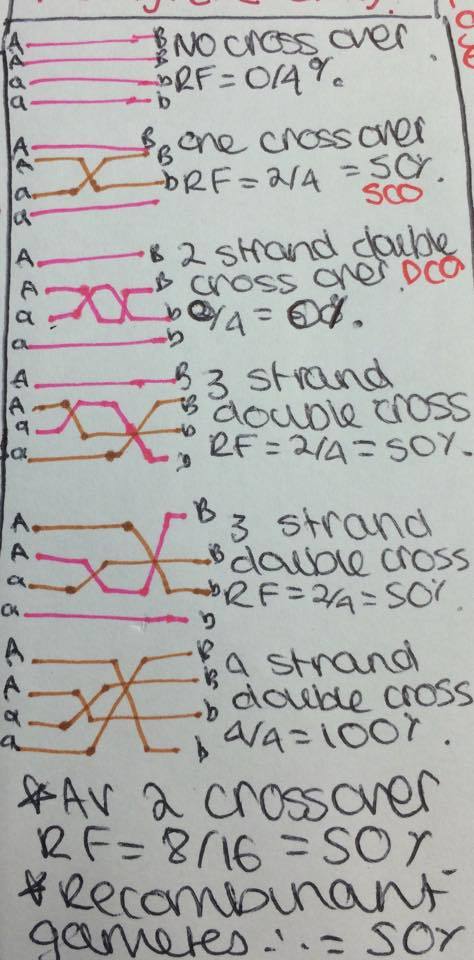 A B NO crossover
A B
a b RF = 0/4%.
a b
A B one crossover
A B
a b RF = 2/4 = 50%.
a
SCO
A B 2 strand double
A B cross over. DCO
a b 0/4 = 0%.
a b
A B 3 strand
A B double cross
a b RF = 2/4 = 50%.
a b
A B 3 strand
A B double cross
a b RF = 2/4 = 50%
a b
A B 4 strand
A B double cross
a b 4/4 = 100%.
a b
*AV 2 crossover
RF = 8/16 = 50%
*Recombinant
gametes ∴ = 50%